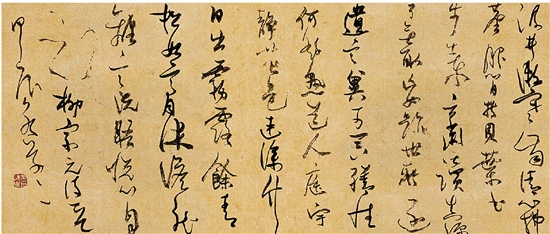 汲井漱寒齒清心拂
塵服閒持貝葉書
步出東齋讀真源
了無取妄跡世所逐
遺言冀可冥繕性
何由熟道人庭宇
靜苔色連深竹
日出霧露餘青
松如膏沐澹然
離言說悟悅心自
足 柳宗元詩